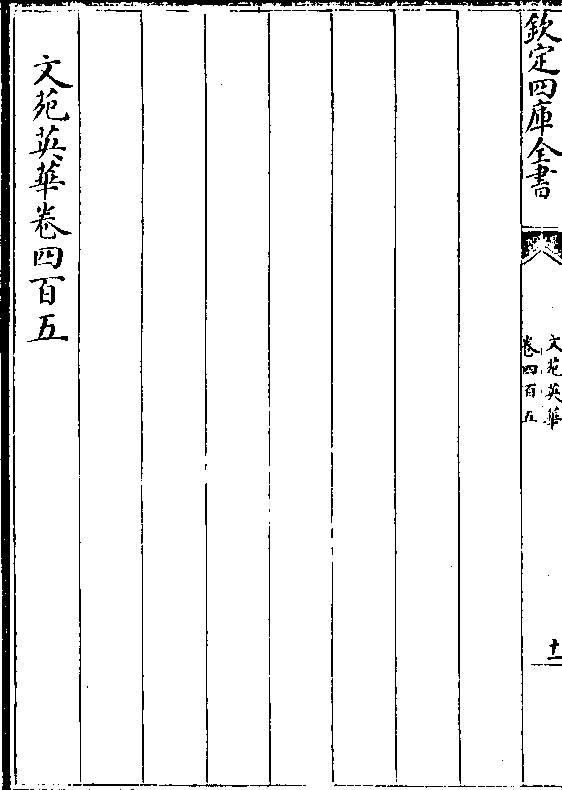 欽定四庫全書
文苑英華
卷四百五
十一
文苑英華卷四百五